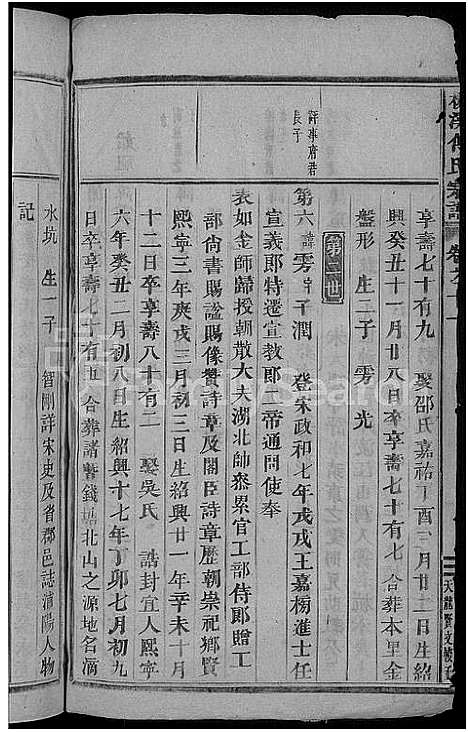 傅氏宗譜
享壽七十有九　娶邵氏嘉祐丁酉三月廿二日生紹
興癸丑十一月廿八日卒享壽七十有七　合葬本里金
盤形　生二子　雱　光
評事府君
長子
第六　諱雱　字千潤　登宋政和七年戊戌王嘉榜進士任
宣義郎特遷宣教郎二帝通問使奉
表如金師歸授朝散大夫湖北帥叅累官工部侍郎贈工
部尚書賜謚賜像贊詩章及閣臣詩章歷朝崇祀鄉賢
熙寧三年庚戌三月初三日生紹興廿一年辛未十月
十二日卒享壽八十有二　娶吳氏　誥封宜人熙寧
六年癸丑二月初八日生紹興十七年丁卯七月初九
日卒享壽七十有五　合葬諸暨錢塘北山之源地名滴
水坑　生一子　智剛詳宋史及省郡邑誌浦陽人物
記